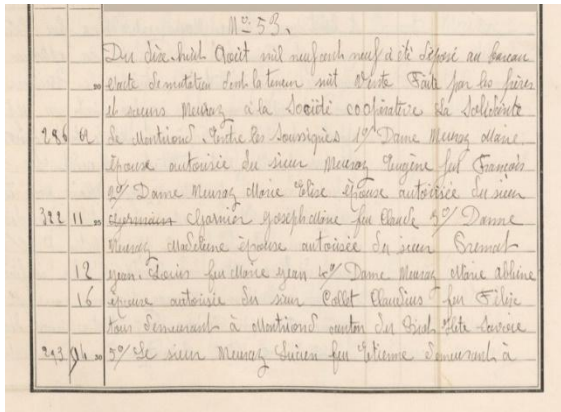 No 53.
Du dix-huit Août mil neuf cent neuf a été déposé au bureau
20 l'acte de mutation dont la teneur suit Vente Faite par les frères
et sœurs Meuraz à la Société coopérative La Solidarité
286 12 de Montriond. Entre les soussignés 1º/ Dame Meuraz Marie
épouse autorisée du sieur Meuraz Eugène feu François
2º/ Dame Meuraz Marie Elise épouse autorisée du sieur
322 11 20 Garnier Joseph Marie feu Claude 3º/ Dame
Meuraz Madeleine épouse autorisée du sieur Premat
12 Jean-Louis feu Marie Jean 4º/ Dame Meuraz Marie
16 épouse autorisée du sieur Collet Claudius feu Félix
tous demeurant à Montriond canton du Biot Hte Savoie
293 94 20 5º/ Le sieur Meuraz Lucien feu Etienne demeurant à